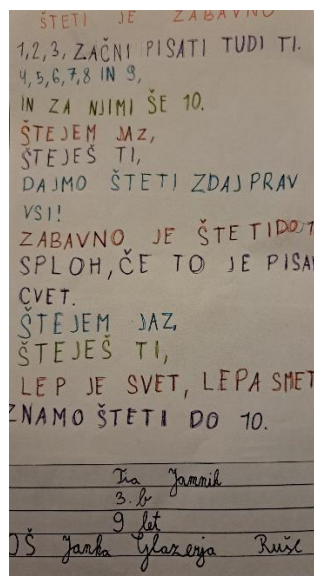 ŠTETI JE ZABAVNO
1,2,3, ZAČNI PISATI TUDI TI.
4,5,6,7,8 IN 9,
IN ZA NJIMI ŠE 10.
ŠTEJEM JAZ,
ŠTEJEŠ TI,
DAJMO ŠTETI ZDAJ PRAV
VSI!
ZABAVNO JE ŠTETI DO 1
SPLOH, ČE TO JE PISA
CVET.
ŠTEJEM JAZ,
ŠTEJEŠ TI,
LEP JE SVET, LEPA SMET
ZNAMO ŠTETI DO 10.
Tia Jamnik
3. b
9 let
OŠ Janka Glazerja Ruše